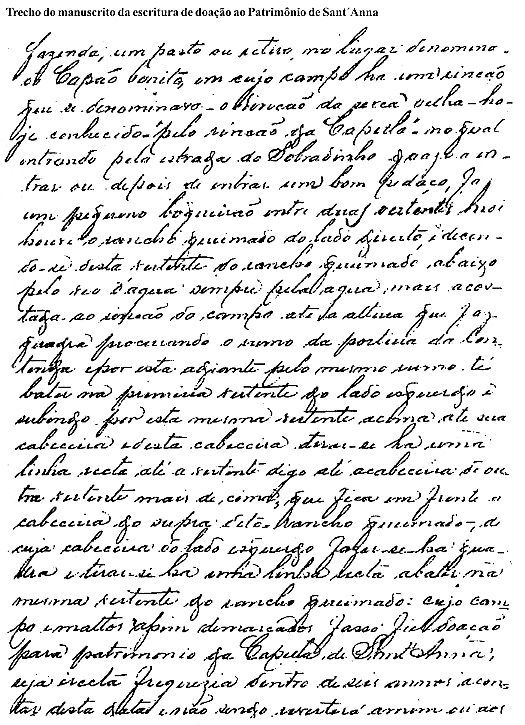 Trecho do manuscrito da escritura de doação ao Patrimônio de Sant´Anna
fazenda, um pasto ou retiro, no lugar denomina-
do Capão bonito, em cujo campo ha um rincão
que se denominava o rincão da cerca velha - ho-
je conhecido - pelo rincão da Capella - no qual
entrando pela estrada do Sobradinho quaze a en-
trar ou depois de entrar um bom pedaço, faz
um pequeno boqueirão entre duas vertentes
houve o rancho queimado do lado direito, e decen-
do-se desta vertente do rancho queimado, abaixo
pelo veo d'agua sempre pela agua, mais acos-
tada ao rincão do campo até a altura que faz
quadra procurando o rumo da porteira da Con-
tenda e por esta adiante pelo mesmo rumo té
bater na primeira vertente do lado esquerdo e
subindo por esta mesma vertente acima até sua
cabeceira e desta cabeceira tirar-se ha uma
linha recta até a vertente digo até a cabeceira de ou-
tra vertente mais de cima, que fica em frente a
cabeceira do supra dito - rancho queimado -, de
cuja cabeceira do lado esquerdo fazer-se-ha qua-
dra e tirar-se ha uma linha recta a bater na
mesma vertente do rancho queimado: cujo cam-
po e mattos assim demarcados fasso doação
para patrimonio da Capella de Sant'Anna;
seja erecta freguezia dentro de seis annos a con-
tar desta data e não sendo revertera a mim ou aos